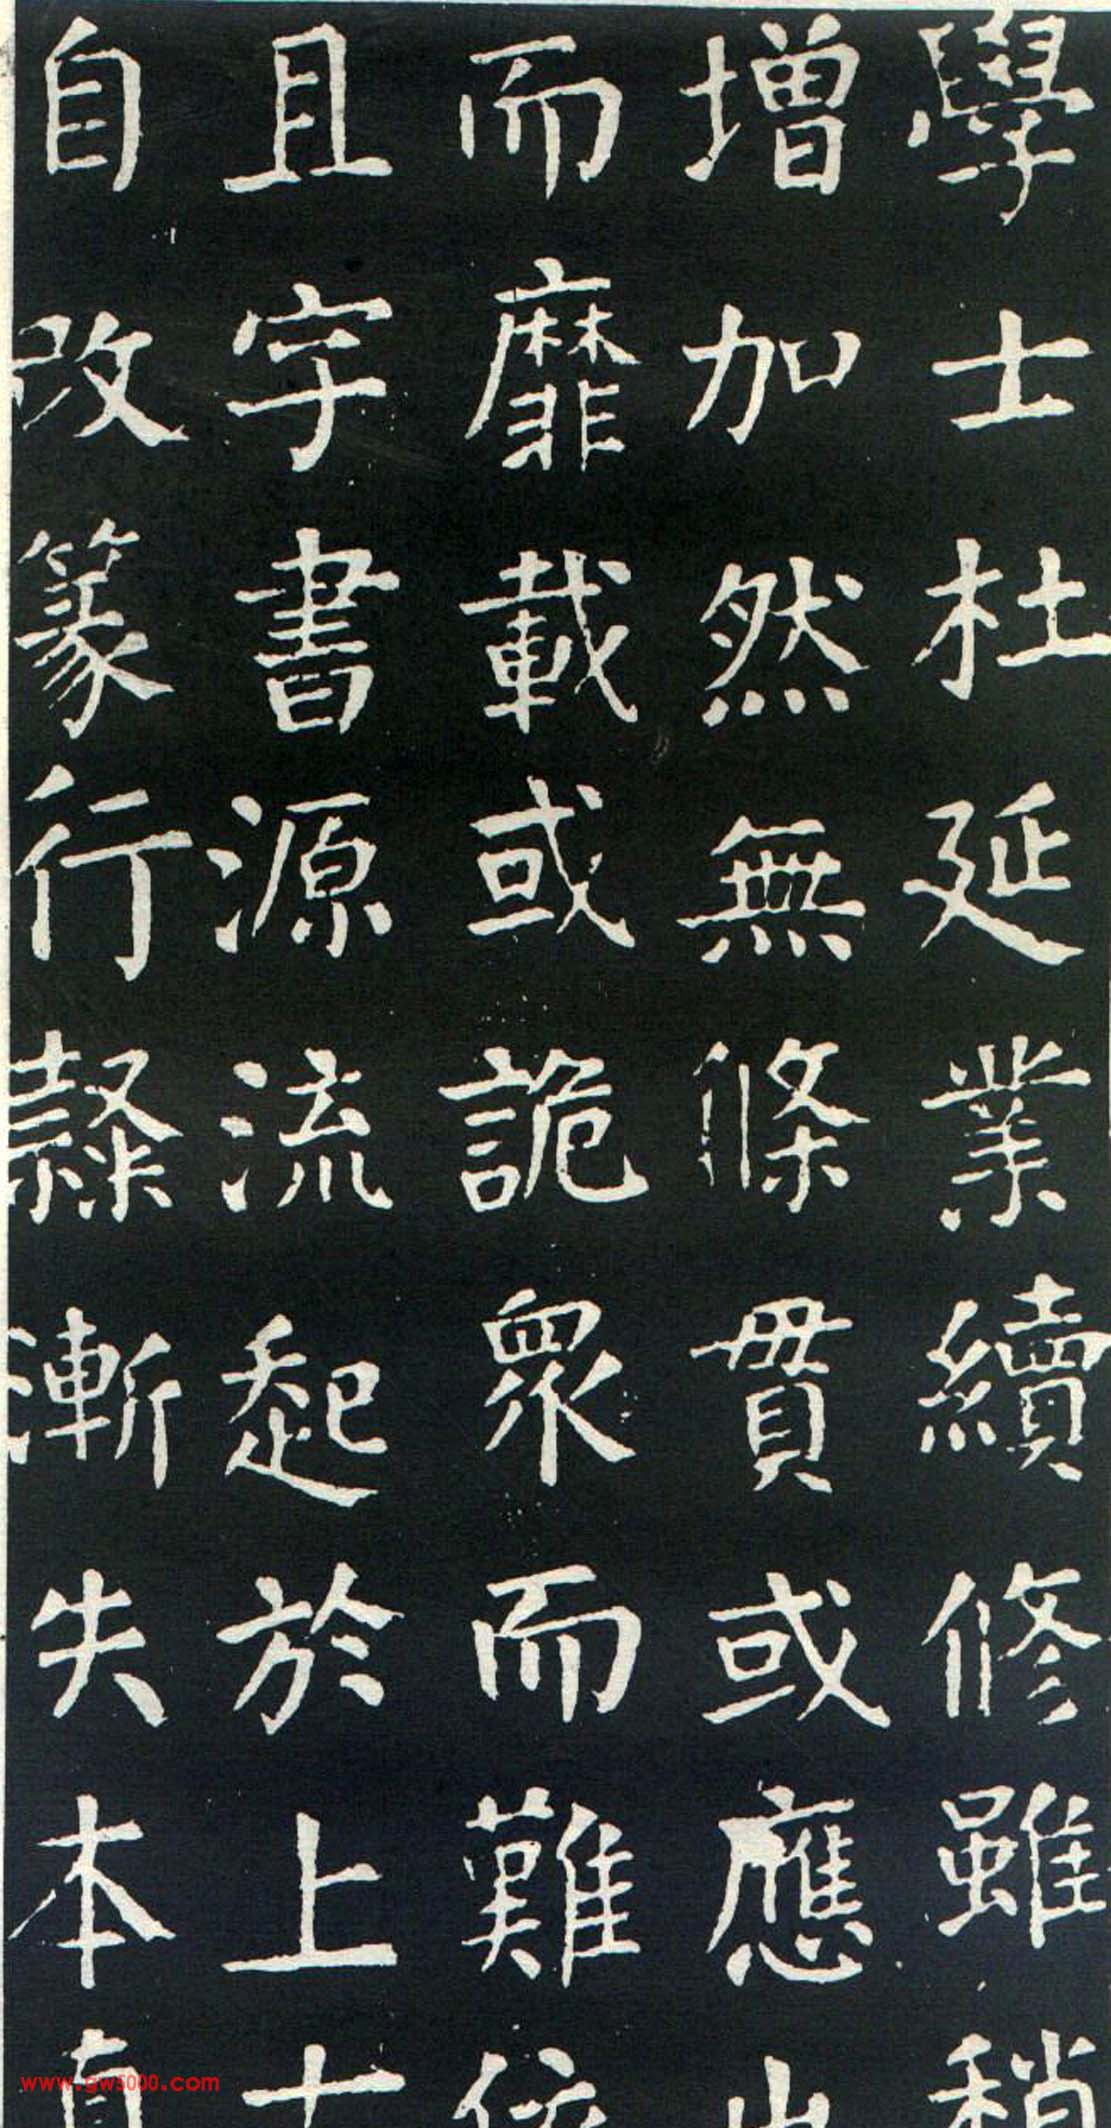 學士杜延業續修雖稍
增加然無條貫或應出
而靡載或詭眾而難依
且字書源流起於上古
自改篆行隸漸失本真
www.gw5000.com